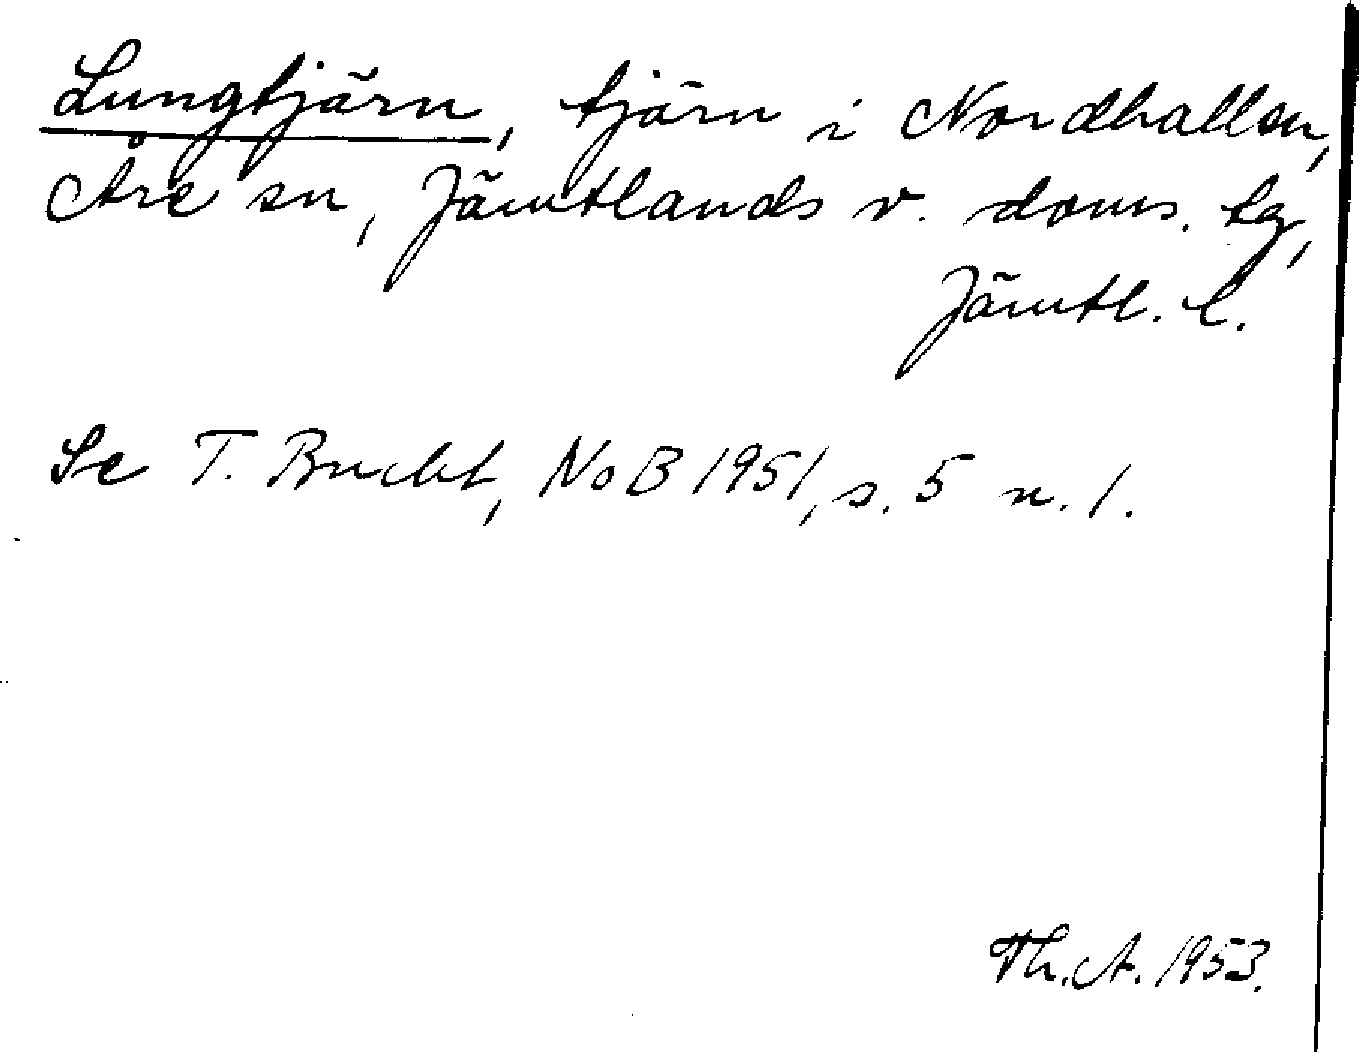 Lungtjärn, tjärn i Nordhallen,
Åre sn, Jämtlands v. doms. tg,
Jämtl. l.
Se T. Bucht, NoB 1951, s. 5 n. 1.
Th. A. 1953.